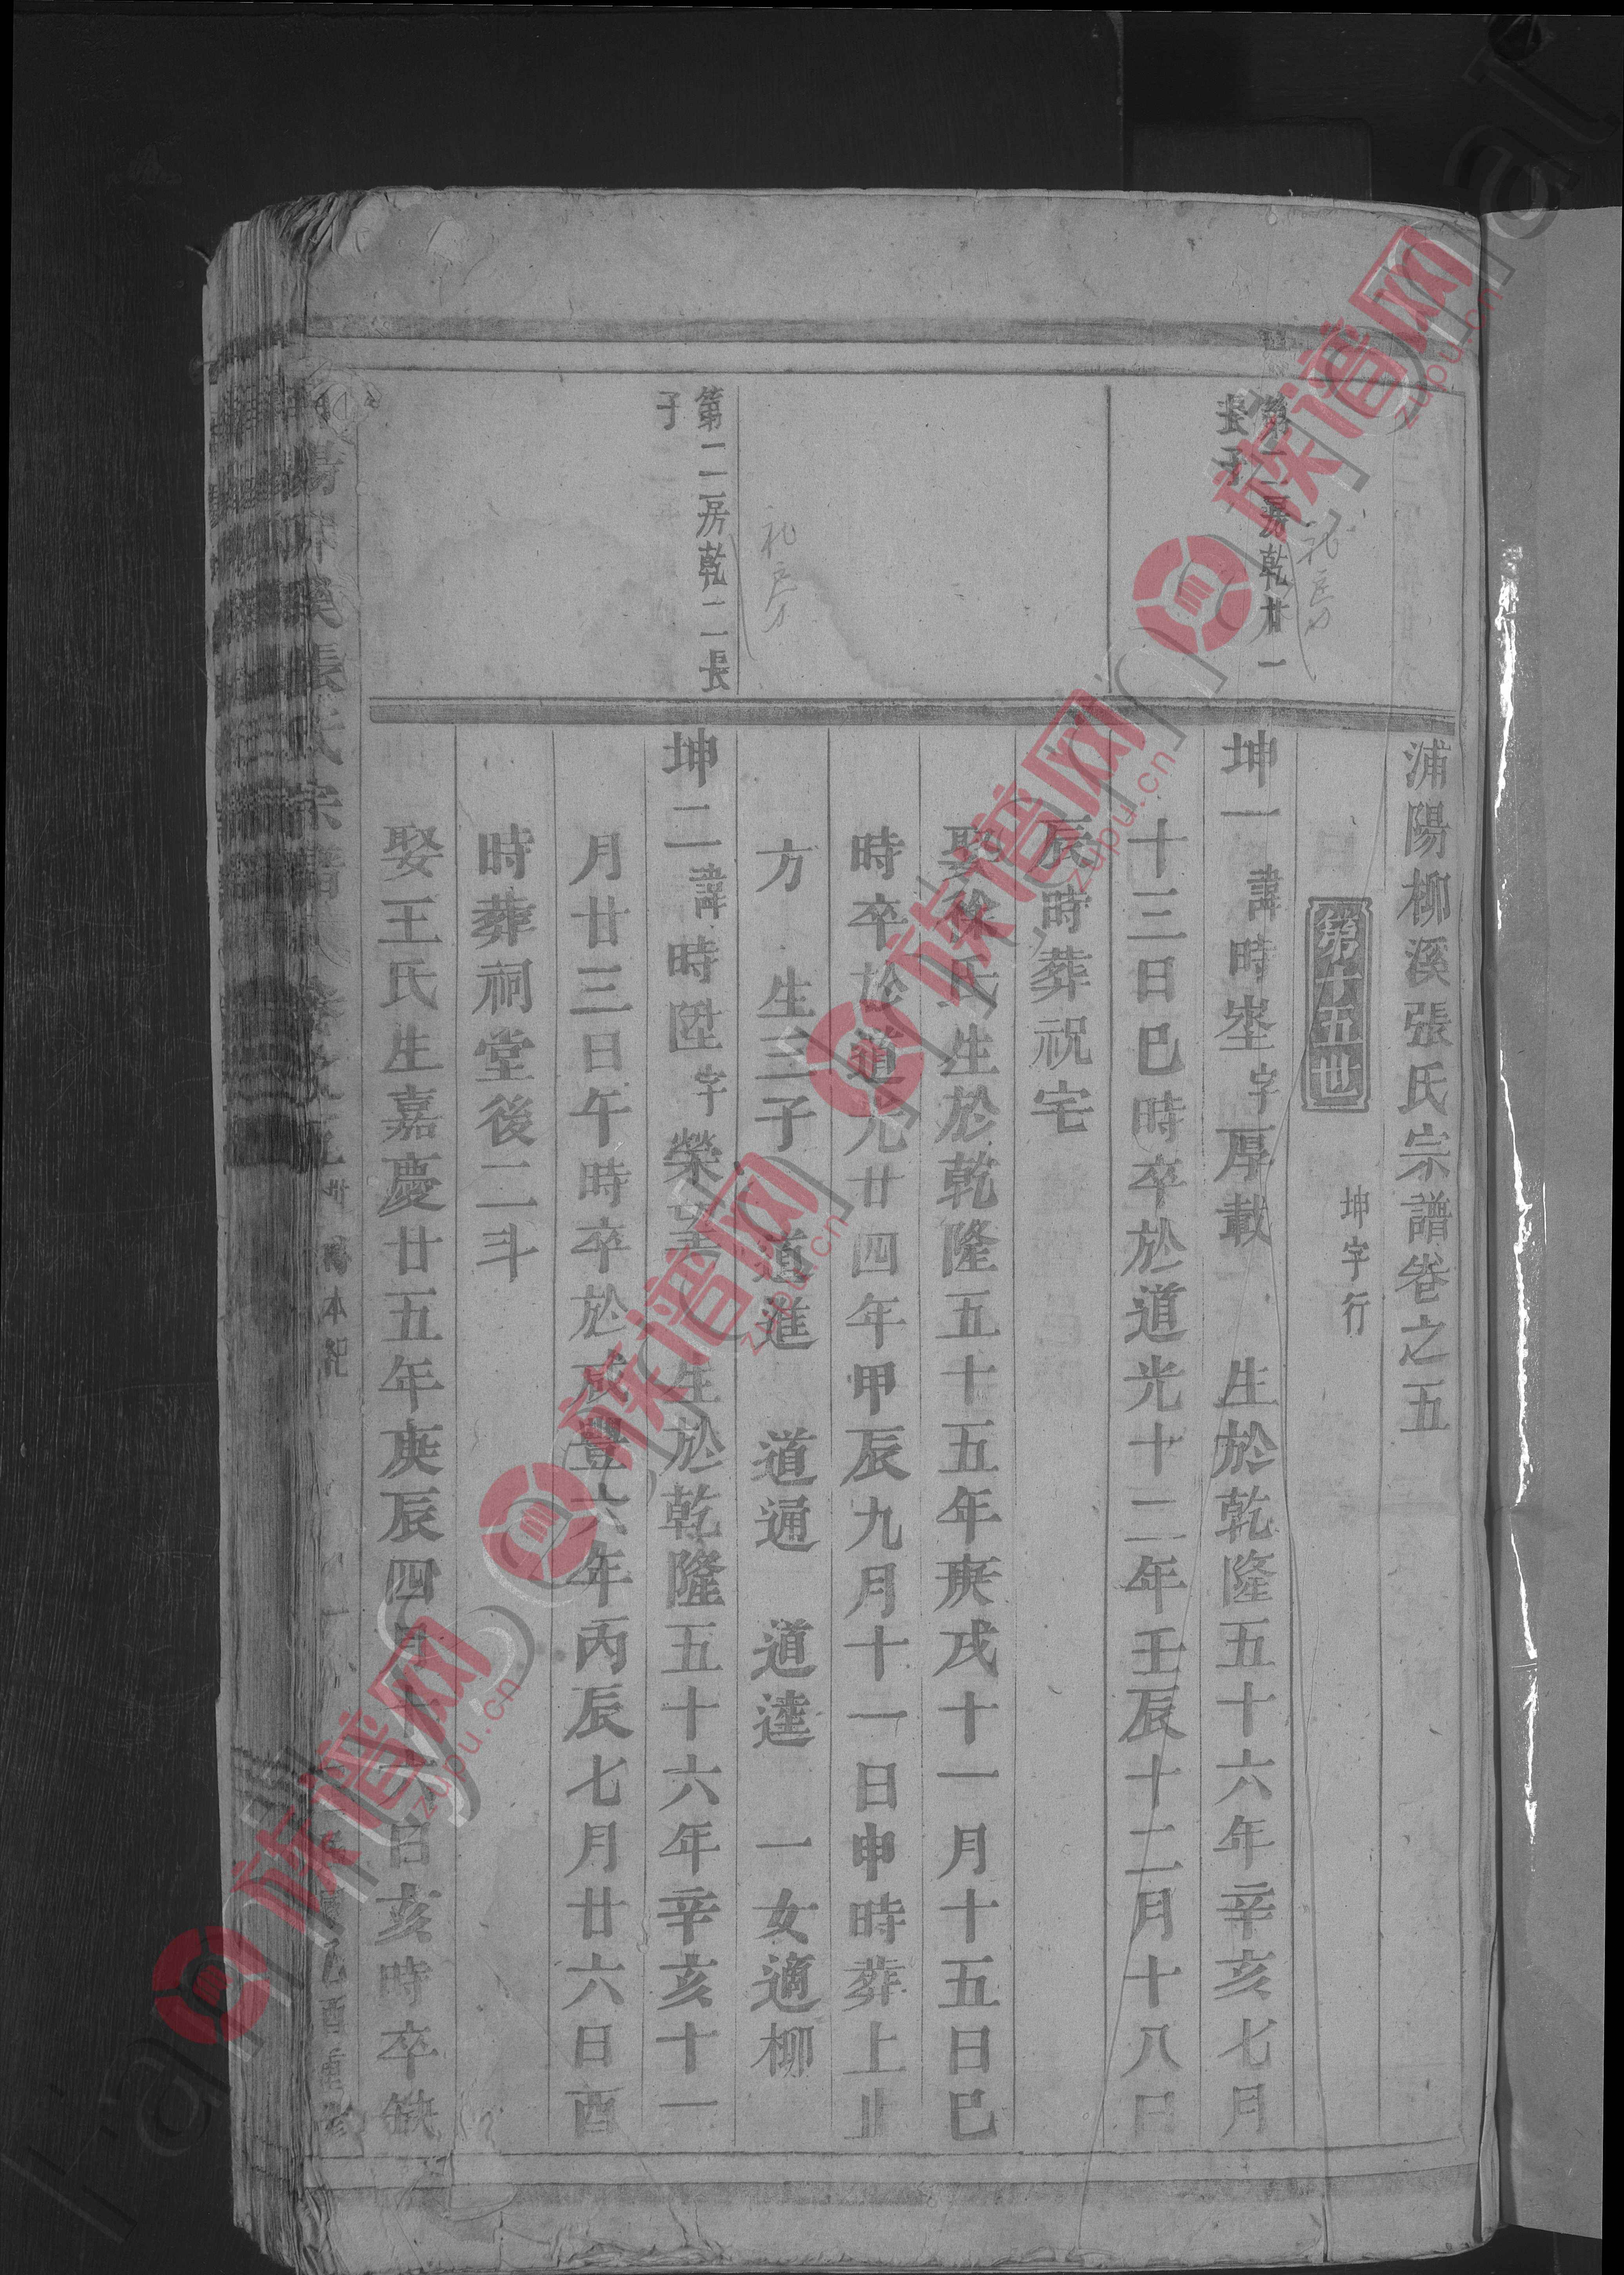 浦陽柳溪張氏宗譜卷之五
第廿五世
坤字行
第二房乾廿一
長子
礼房
坤一諱時埊字厚載 生於乾隆五十六年辛亥七月
十三日巳時卒於道光十二年壬辰十二月十八日
辰時葬祝宅
娶徐氏生於乾隆五十五年庚戌十一月十五日巳
時卒於道光廿四年甲辰九月十一日申時葬上止
方 生三子 道進 道通 道達 一女適柳
礼房
第二房乾二長
子
坤二諱時 字榮 生於乾隆五十六年辛亥十一
月廿三日午時卒於咸豐六年丙辰七月廿六日酉
時葬祠堂後二斗
娶王氏生嘉慶廿五年庚辰四月十六日亥時卒缺
陽柳溪張氏宗譜 卷之五 本紀 乙酉重修
族谱网
zupu.cn
族谱网
zupu.cn
族谱网
zupu.cn
族谱网
zupu.cn